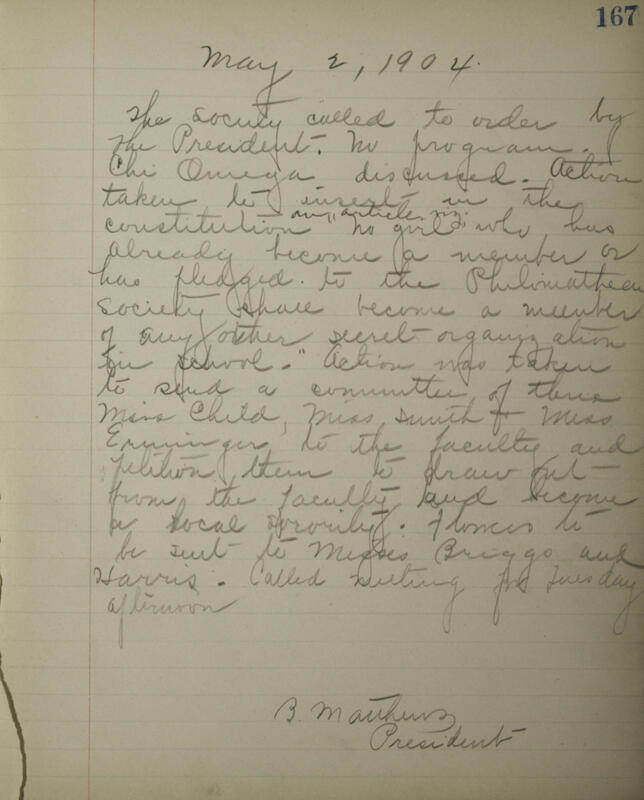 167
May 2, 1904.
The Society called to order by
the President. No program.
Chi Omega discussed. Action
taken to insert in the
constitution an article, viz.
"No girl who has
already become a member or
has pledged to the Philomathean
Society shall become a member
of any other secret organization
in school." Action was taken
to send a committee of three
Miss Child, Miss Smith & Miss
Erminger, to the faculty and
petition them to draw out
from the faculty and become
a local sorority. Flowers to
be sent to Misses Briggs and
Harris. Called meeting for Tuesday
afternoon
B. Matthews
President